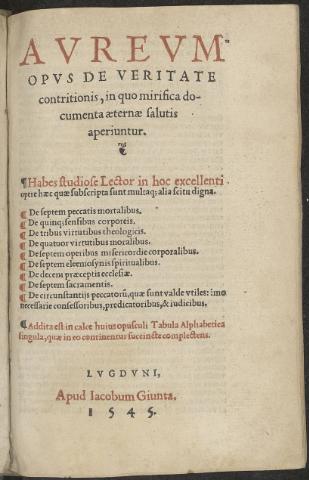 AVREVM
OPVS DE VERITATE
contritionis, in quo mirifica do-
cumenta æternæ salutis
aperiuntur.
¶Habes studiose Lector in hoc excellenti
opere hæc quæ subscripta sunt multaq; alia scitu digna.
¶ De septem peccatis mortalibus.
¶ De quinq; sensibus corporeis.
¶ De tribus virtutibus theologicis.
¶ De quatuor virtutibus moralibus.
¶ De septem operibus misericordie corporalibus.
¶ De septem eleemosynis spiritualibus.
¶ De decem præceptis ecclesiæ.
¶ De septem sacramentis.
¶ De circunstantijs peccatorũ, quæ sunt valde vtiles: imo
necessarie confessoribus, prædicatoribus, & iudicibus,
¶ Addita est in calce huius opusculi Tabula Alphabetica
singula, quæ in eo continentur succincte complectens.
LVGDVNI,
Apud Iacobum Giunta.
1545.